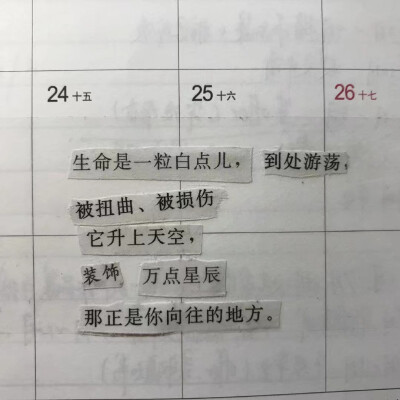 24 十五 25 十六 26 十七
生命是一粒白点儿， 到处游荡，
被扭曲、被损伤
它升上天空，
装饰 万点星辰
那正是你向往的地方。